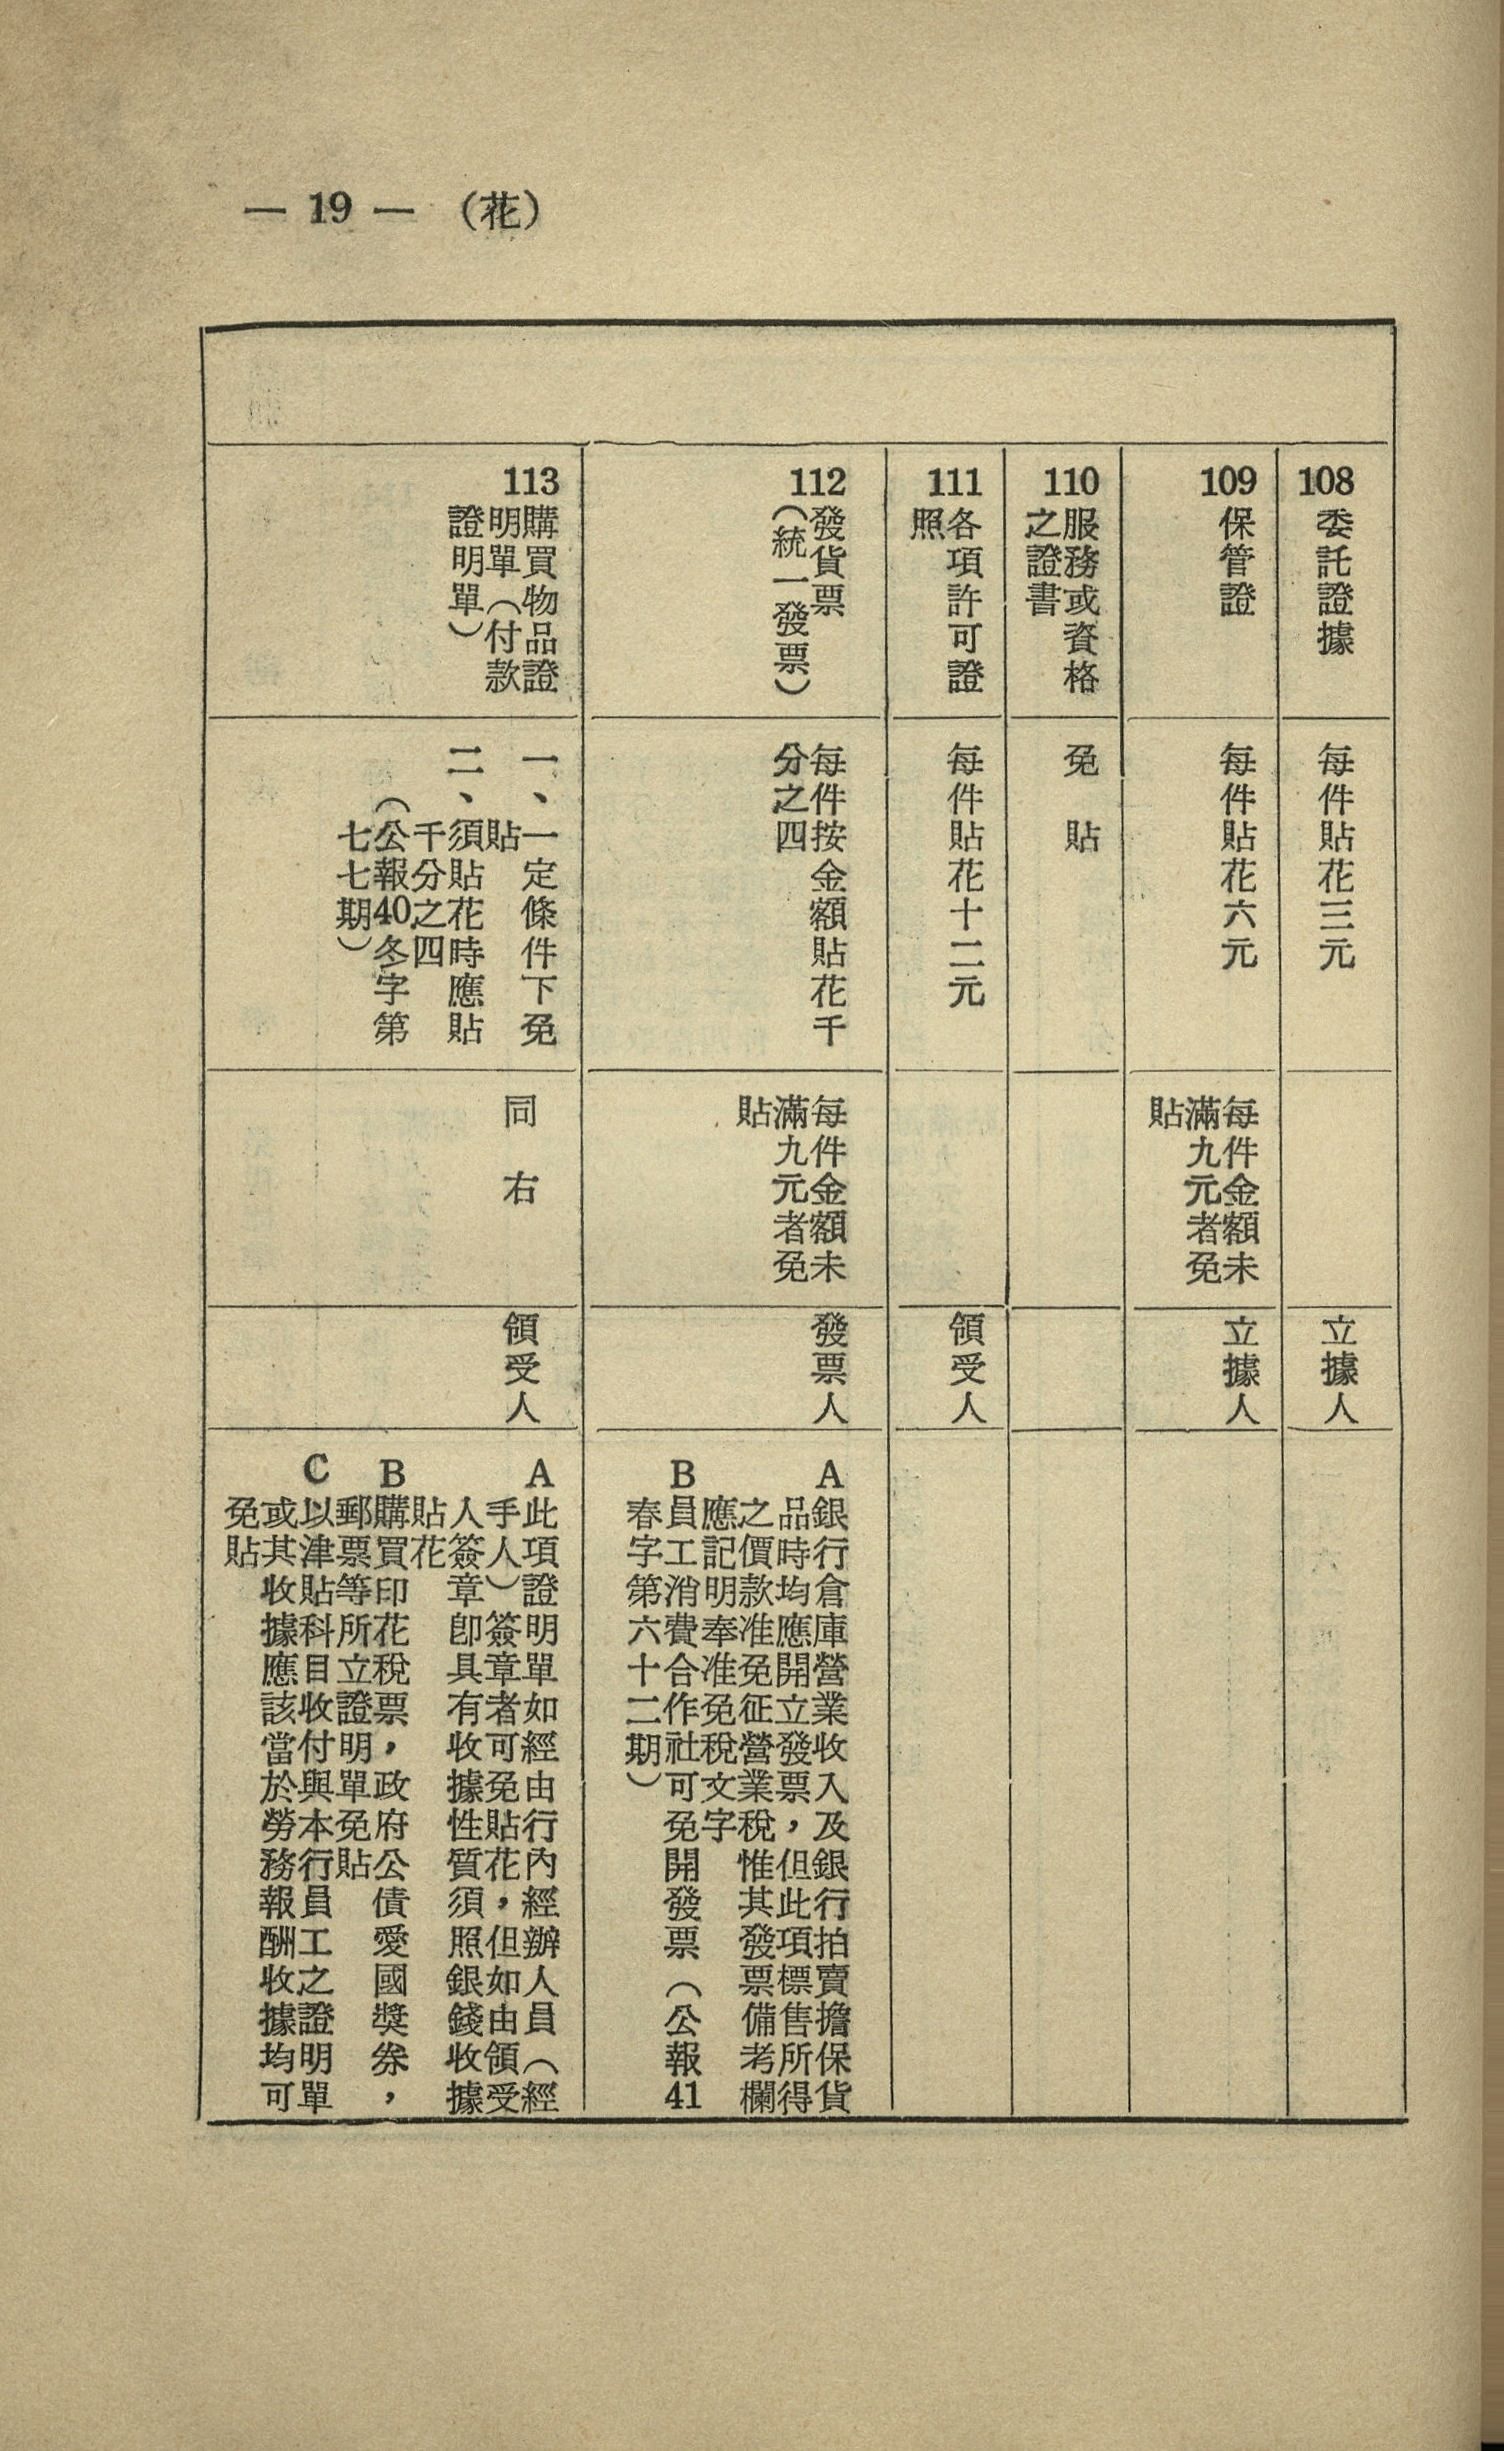 — 19 — （花）
108
委託證據
每件貼花三元
立據人
109
保管證
每件貼花六元
每件金額未
滿九元者免
貼
立據人
110
服務或資格
之證書
免貼
111
各項許可證
照
每件貼花十二元
領受人
112
發貨票
（統一發票）
每件按金額貼花千
分之四
每件金額未
滿九元者免
貼
發票人
A銀行倉庫營業收入及銀行拍賣擔保貨
品時均應開立發票，但此項標售所得
之價款准免征營業稅惟其發票備考欄
應記明奉准免稅文字
B員工消費合作社可免開發票（公報41
春字第六十二期）
113
購買物品證
明單（付款
證明單）
一、一定條件下免
貼
二、須貼花時應貼
千分之四
（公報40冬字第
七七期）
同右
領受人
A此項證明單如經由行內經辦人員（經
手人）簽章者可免貼花，但如由領受
人簽章卽具有收據性質須照銀錢收據
貼花
B購買印花稅票，政府公債愛國獎券，
郵票等所立證明單免貼
C以津貼科目收付與本行員工之證明單
或其收據應該當於勞務報酬收據均可
免貼